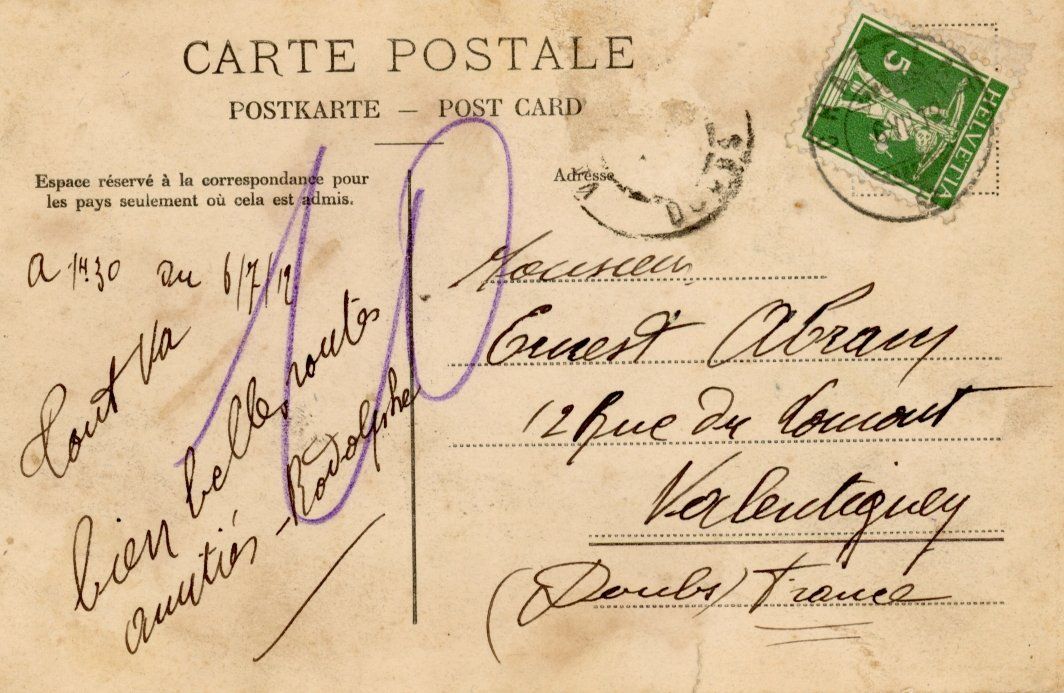 CARTE POSTALE
POSTKARTE — POST CARD
Espace réservé à la correspondance pour
les pays seulement où cela est admis.
Adresse
DOUBS
5
HELVETIA
10
a 1H30 du 6/7/12
tout va
bien belles routes
amitiés - Rodolphe
Monsieur
Ernest Abram
12 Rue du Lomont
Valentigney
(Doubs) France